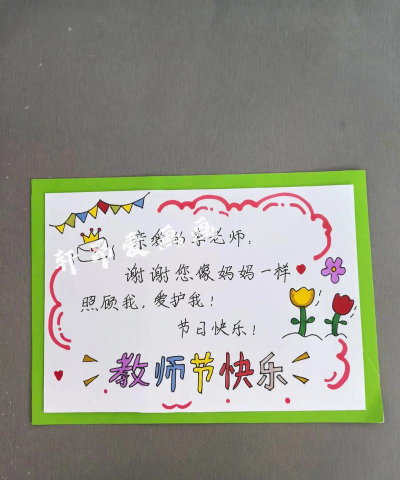 亲爱的李老师:
谢谢您像妈妈一样
照顾我,爱护我!
节日快乐!
教师节快乐